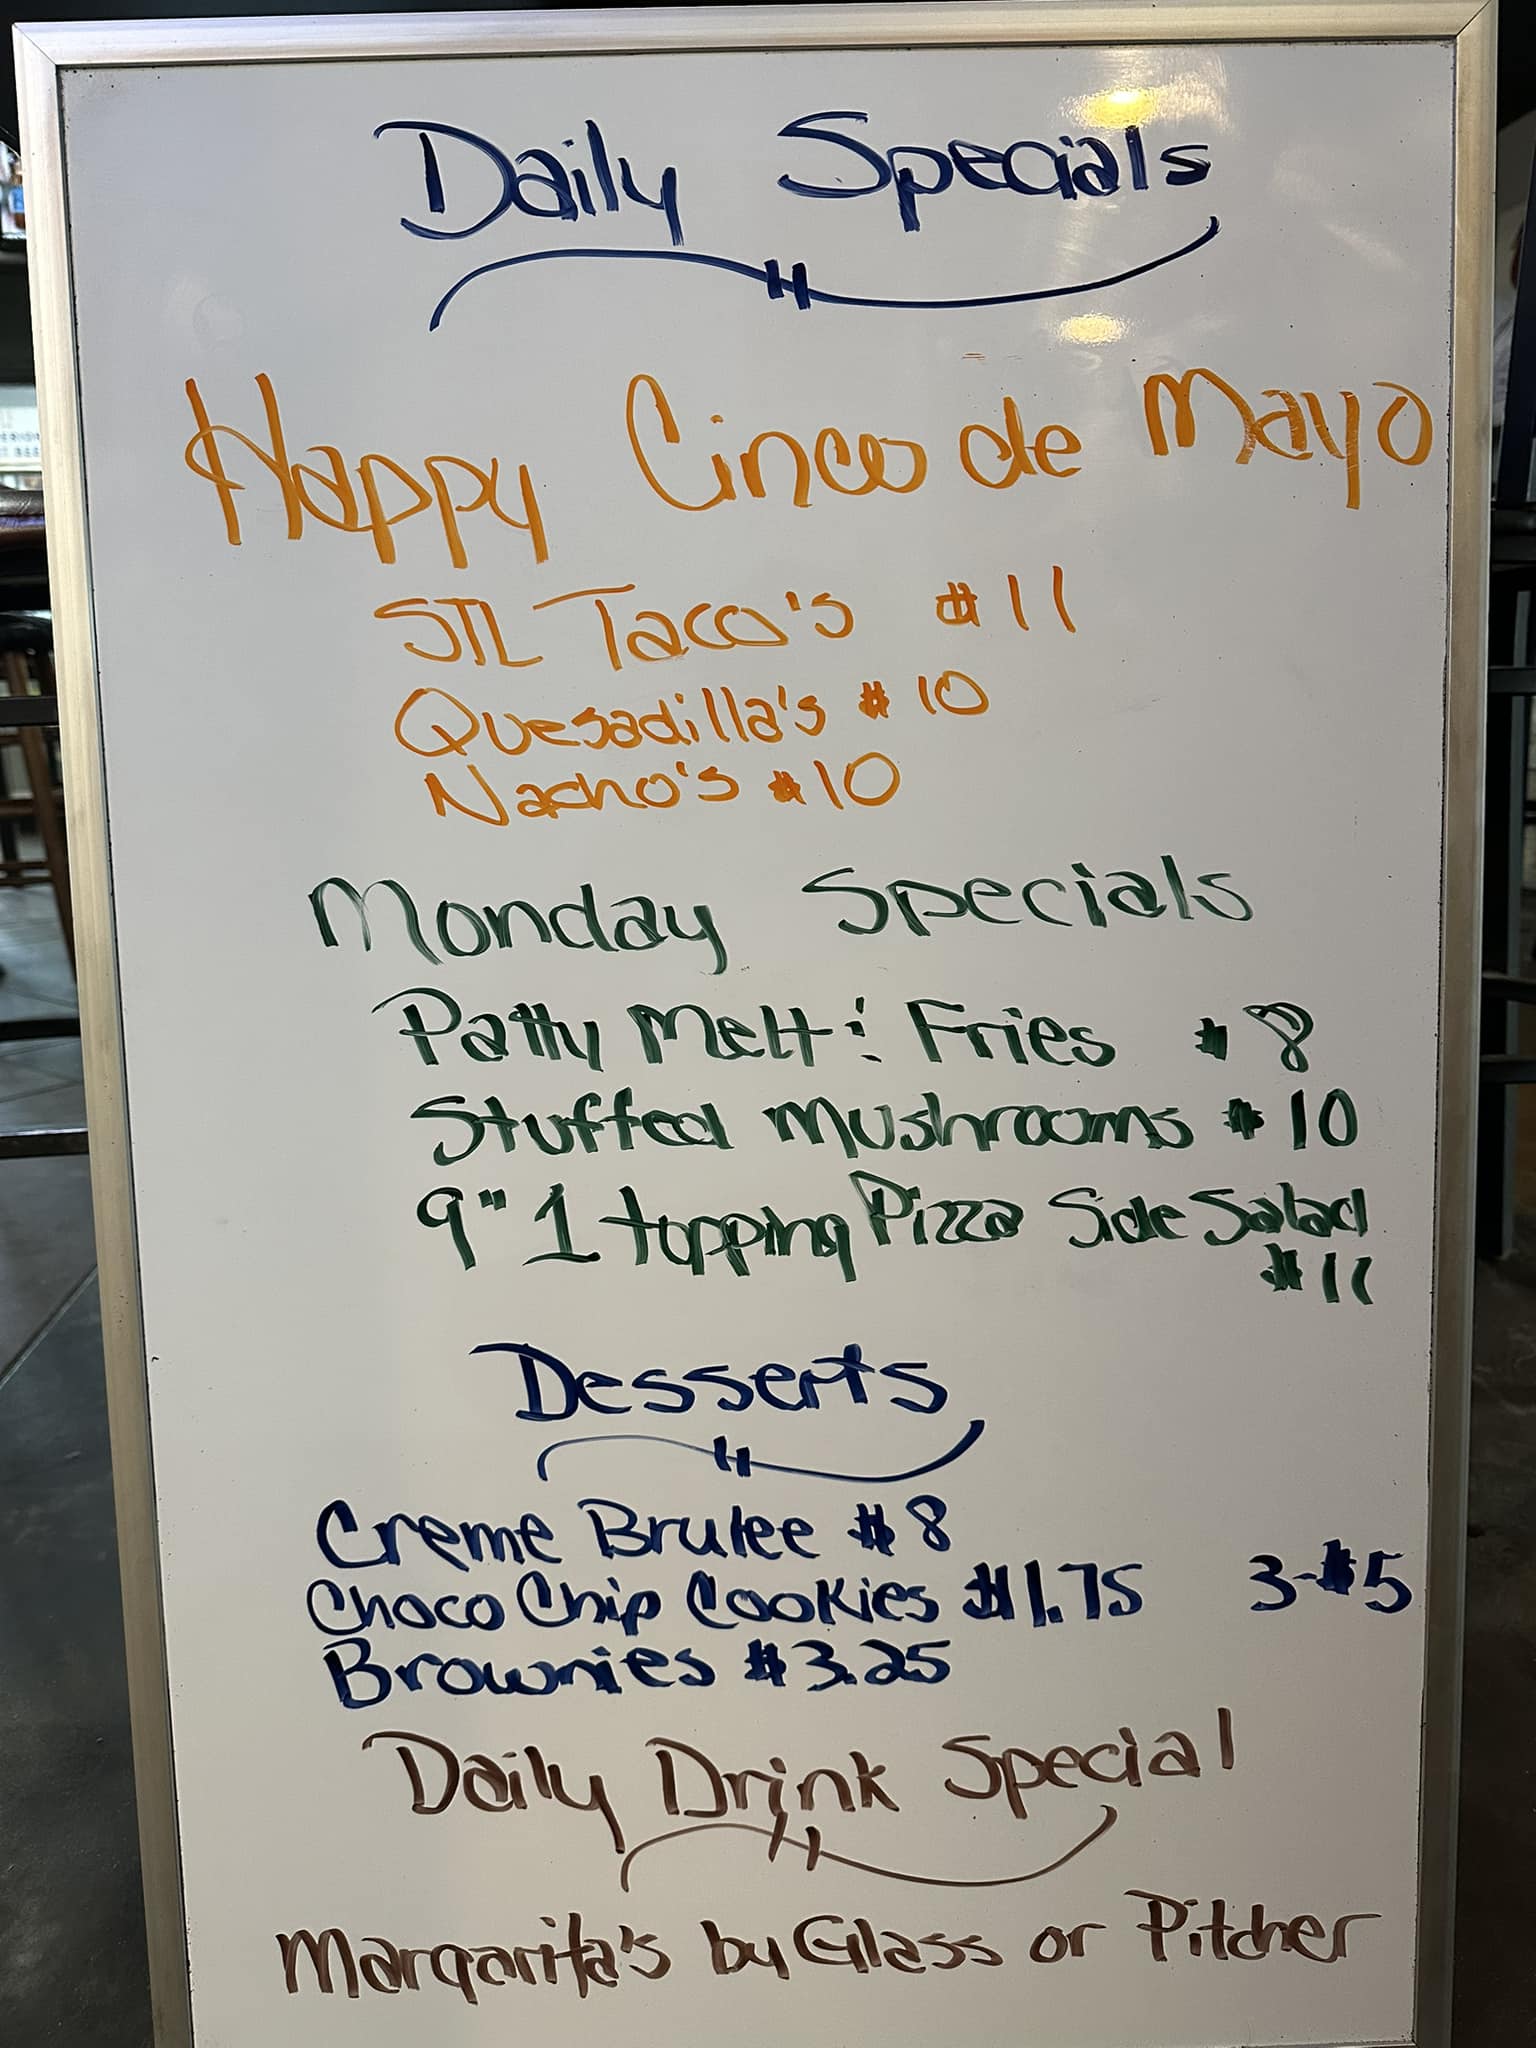 Daily Specials
Happy Cinco de Mayo
STL Taco's $11
Quesadilla's $10
Nacho's $10
Monday Specials
Patty Melt & Fries $8
Stuffed Mushrooms $10
9" 1 topping Pizza Side Salad
$11
Desserts
Creme Brulee $8
Choco Chip Cookies $1.75 3-$5
Brownies $3.25
Daily Drink Special
Margarita's by Glass or Pitcher